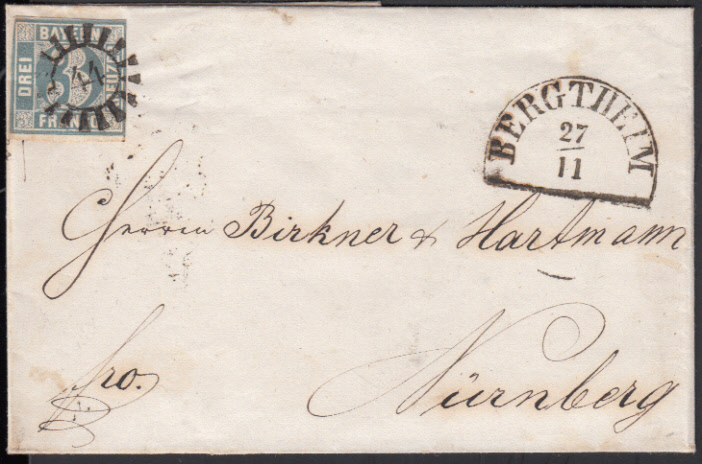 BAYERN
DREI
KREUZER
FRANCO
BERGTHEIM
27
11
Herrn Birkner & Hartmann
fro.
Nürnberg